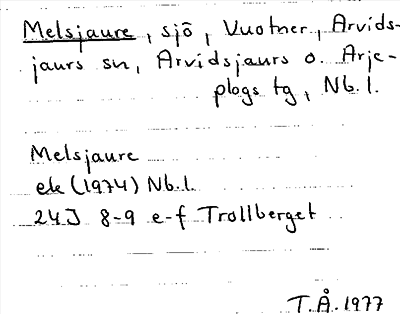 Melsjaure, sjö, Vuotner, Arvids-
jaurs sn, Arvidsjaurs o. Arje-
plogs tg, Nb. l.
Melsjaure
ek (1974) Nb. l.
24J 8-9 e-f Trollberget
T.Å. 1977